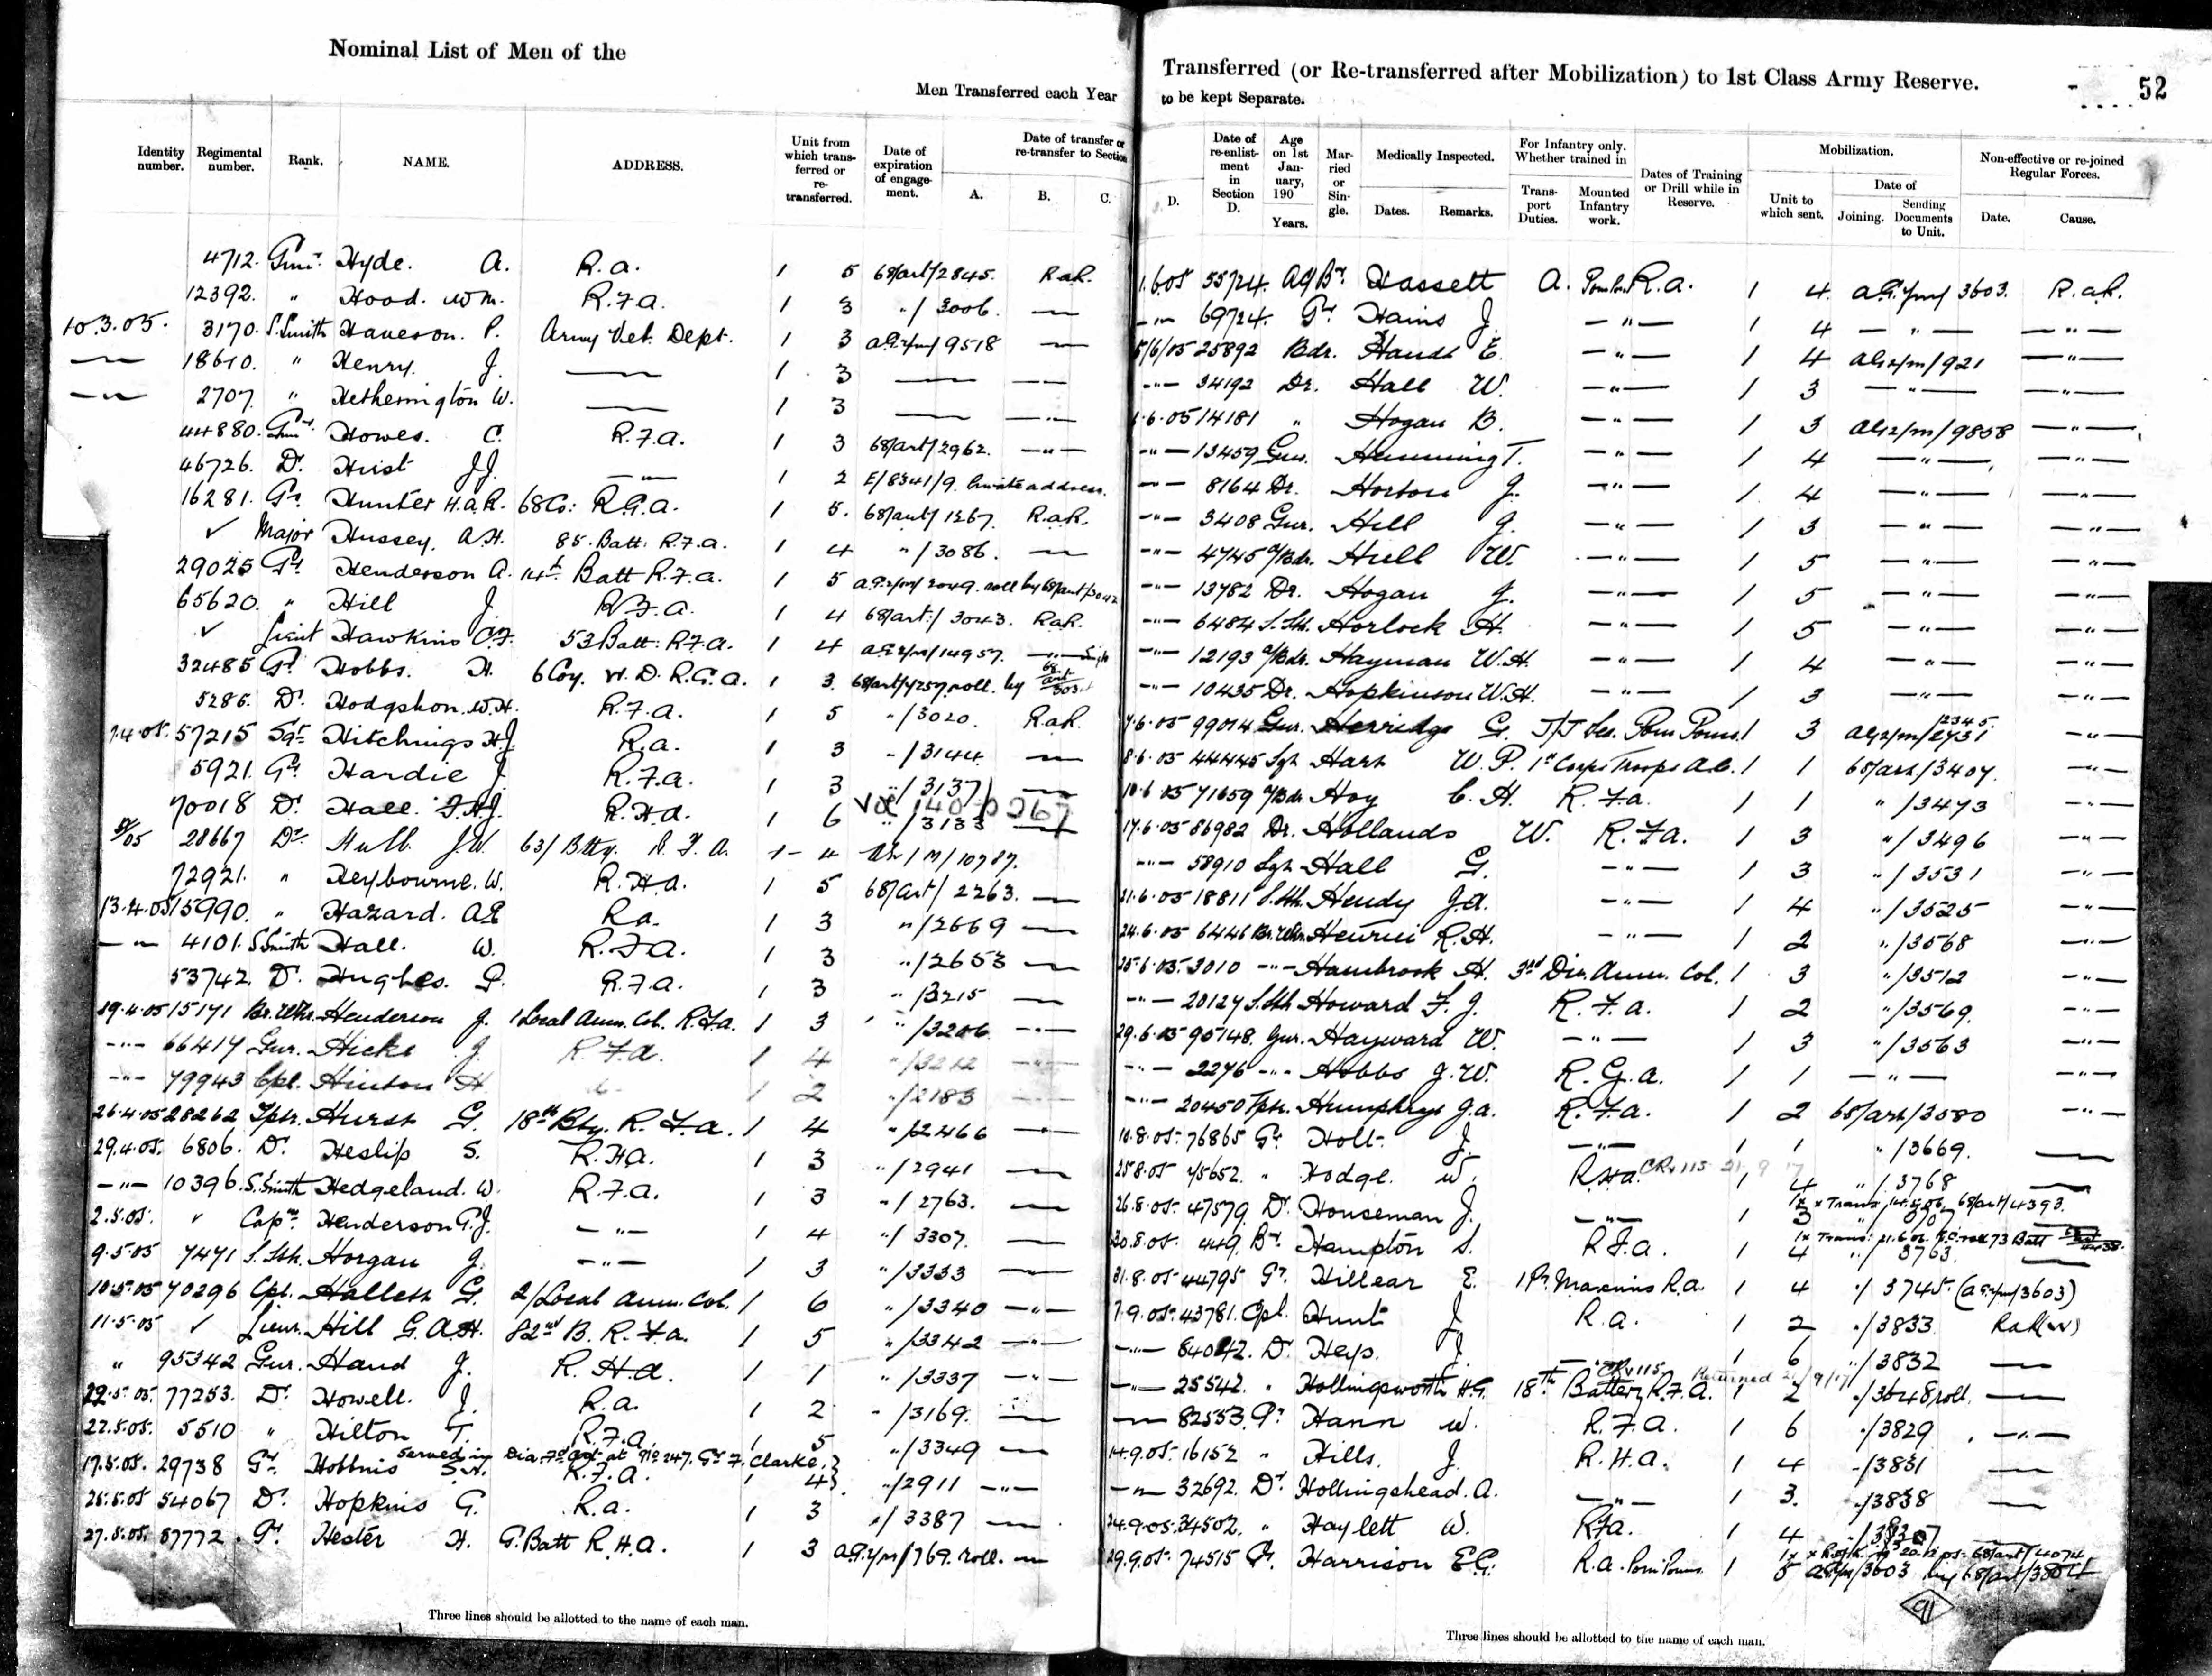 Nominal List of Men of the
Men Transferred each Year
Identity number. Regimental number. Rank. NAME. ADDRESS. Unit from which trans- ferred or re- transferred. Date of expiration of engage- ment. Date of transfer or re-transfer to Section A. B. C.
4712. Gunr. Hyde. A. R.a. 1 5 68/art/2845. RaR.
12392. " Hood. Wm. R.F.a. 1 3 "/3006. —
10.3.05. 3170. S.Smith Haveson. P. Army Vet. Dept. 1 3 9518 —
— 18610. " Henry. J. — 1 3 — —
— 2707. " Hetherington W. — 1 3 — —
44880. Gunr. Howes. C. R.F.a. 1 3 68/art/2962. —"—
46726. Dr. Hirst JJ. —"— 1 2 E/8341/9. Private address.
16281. Gr. Hunter H.a.R. 68Co: R.G.a. 1 5. 68/art/1267. R.aR.
✓ Major Hussey. A.H. 85. Batt: R.F.a. 1 4 "/3086. —
29025 Gr. Henderson A. 14th Batt R.F.a. 1 5 2049. roll by 68/art/3042
65620. " Hill J. R.F.a. 1 4 68/art/3043. RaR.
✓ Lieut Hawkins C.F. 53 Batt: R.F.a. 1 4 14957.
32485 Gr. Hobbs. H. 6 Coy. W.D. R.G.a. 1 3. roll. by
5286. Dr. Hodgshon. W.H. R.F.a. 1 5 "/3020. RaR.
7.4.05. 57215 Sgt Hitchings H.J. R.a. 1 3 "/3144. —
5921. Gr. Hardie J. R.F.a. 1 3 "/3137 —
70018 Dr. Hall. F.H.J. R.H.a. 1 6 "/3133 —
28667 Dr. Hull. J.W. 63/Btty. R.F.A. 1 4 /M/10787.
72921. " Heybourne. W. R.H.a. 1 5 68/art/2263. —
13.4.05 15990. " Hazard. A.E. Ra. 1 3 "/2669 —
—"— 4101. S.Smith Hall. W. R.F.a. 1 3 "/2653 —
53742. Dr. Hughes. P. R.F.a. 1 3 "/3215 —
19.4.05 15171 Br.Whr. Henderson J. 1 Local Amm. Col. R.F.a. 1 3 "/3206 —"—
—"— 66417 Gur. Hicks J. R.F.a. 1 4 "/3212 —"—
—"— 79943 Cpl. Hinton H 1 2 "/2183 —"—
26.4.05 28262 Tptr. Hurst G. 18th Bty. R.F.a. 1 4 "/2466 —"—
29.4.05. 6806. Dr. Heslip S. R.H.a. 1 3 "/2941 —
—"— 10396. S.Smith Hedgeland. W. R.F.a. 1 3 "/2763. —
2.5.05. ✓ Capn. Henderson G.J. —"— 1 4 "/3307. —
9.5.05 7471 S.Sth. Horgan J. —"— 1 3 "/3333 —
10.5.05 70296 Cpl. Hallett G. 2/Local Amm. Col. 1 6 "/3340 —"—
11.5.05 ✓ Lieut. Hill G.A.H. 82nd B. R.F.a. 1 5 "/3342 —"—
" 95342 Gur. Hand J. R.H.a. 1 1 "/3337 —"—
22.5.05. 77253. Dr. Howell. J. R.a. 1 2 "/3169. —
22.5.05. 5510 " Hilton T. R.F.a. 1 5 "/3349 —
served in at 247. Gr F. Clarke.
17.5.05. 29738 Gr. Hobbins S.A. R.F.a. 1 4 "/2911 —"—
25.5.05 54067 Dr. Hopkins G. R.a. 1 3 "/3387 —
27.5.05. 87772. Gr. Hester H. G. Batt R.H.a. 1 3 /769. roll. —
Three lines should be allotted to the name of each man.
Transferred (or Re-transferred after Mobilization) to 1st Class Army Reserve. 52
to be kept Separate.
D. Date of re-enlist- ment in Section D. Age on 1st Jan- uary, 190 Years. Mar- ried or Sin- gle. Medically Inspected. Dates. Remarks. For Infantry only. Whether trained in Trans- port Duties. Mounted Infantry work. Dates of Training or Drill while in Reserve. Mobilization. Unit to which sent. Date of Joining. Sending Documents to Unit. Non-effective or re-joined Regular Forces. Date. Cause.
1.6.05 55724. Hassett A. R.a. 1 4 3603. R.aR.
—"— 69724. Gr. Hains J. —"— 1 4 —"— —"—
5/6/05 25892 Bdr. Hands E. —"— 1 4 /921 —"—
—"— 34192 Dr. Hall W. —"— 1 3 —"— —"—
6.6.05 14181 " Hogan B. —"— 1 3 /9858 —"—
—"— 13459 Gur. Humming T. —"— 1 4 —"— —"—
—"— 8164 Dr. Horton J. —"— 1 4 —"— —"—
—"— 3408 Gur. Hill J. —"— 1 3 —"— —"—
—"— 4745 a/Bdr. Hull W. —"— 1 5 —"— —"—
—"— 13782 Dr. Hogan J. —"— 1 5 —"— —"—
—"— 6484 S.Sth. Horlock H. —"— 1 5 —"— —"—
—"— 12193 a/Bdr. Hayman W.H. —"— 1 4 —"— —"—
—"— 10435 Dr. Hopkinson W.H. —"— 1 3 —"— —"—
7.6.05 99014 Gur. Herridge G. Pom Poms. 1 3 —"—
8.6.05 44445 Sgt Hart W.P. 1st Corps Troops A.C. 1 1 68/art/3407. —"—
10.6.05 71659 a/Bdr. Hoy C.H. R.F.a. 1 1 "/3473 —"—
17.6.05 86982 Dr. Hollands W. R.F.a. 1 3 "/3496 —"—
—"— 58910 Sgt Hall G. —"— 1 3 "/3531 —"—
21.6.05 18811 S.Sth. Hendy J.a. —"— 1 4 "/3525 —"—
24.6.05 6446 Br.Whr. Henrici R.H. —"— 1 2 "/3568 —"—
25.6.05. 3010 —"— Hambrook H. 3rd Div. Amm. Col. 1 3 "/3512 —"—
—"— 20127 S.Sth Howard F.J. R.F.a. 1 2 "/3569. —"—
29.6.05 95148. Gur. Hayward W. —"— 1 3 "/3563 —"—
—"— 2276 —"— Hobbs J.W. R.G.a. 1 1 —"— —"—
—"— 20450 Tptr. Humphrys J.a. R.F.a. 1 2 68/art/3580 —"—
10.8.05. 76865 Gr. Holt. J. —"— 1 1 "/3669. —
25.8.05 45652. " Hodge. W. R.H.a. 1 4 "/3768 —
26.8.05. 47579. Dr. Houseman J. —"— 1 3 x Trans. 68/art/4393.
30.8.05. 449. Br. Hampton S. R.F.a. 1 4 "/3763 —
31.8.05 44795 Gr. Hillear E. Maxims R.a. 1 4 "/3745. (3603)
7.9.05. 43781. Cpl. Hunt J. R.a. 1 2 "/3833
—"— 84042. Dr. Heys. J. —"— 1 6 "/3832 —
—"— 25542. " Hollingsworth H.G. 18th Battery R.F.A. Returned 1 2 "/3648 roll. —
—"— 82553. Gr. Hann W. R.F.a. 1 6 "/3829 —"—
14.9.05. 16152 " Hills. J. R.H.a. 1 4 "/3831 —
—"— 32692. Dr. Hollingshead. A. —"— 1 3. "/3838 —
24.9.05. 34502. " Haylett W. R.F.a. 1 4
29.9.05. 74515 Gr. Harrison E.G. R.a. Pom Poms. 1 5 /3603 by 68/art/3804
Three lines should be allotted to the name of each man.